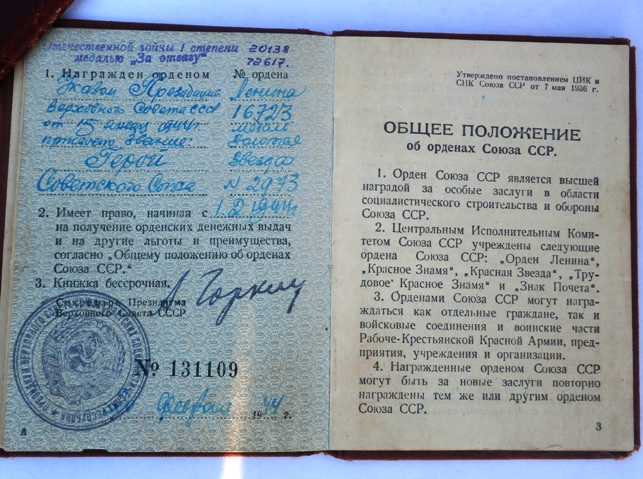 Отечественной войны I степени 20138
медалью „За отвагу“ 72617.
1. Награжден орденом № ордена
Указом Президиума Ленина
Верховного Совета СССР 16723
от 15 1944г. медаль
присвоено звание: Золотая
Герой Звезда
Советского Союза N 2973
2. Имеет право, начиная с 1 2 1944г
на получение орденских денежных выдач
и на другие льготы и преимущества,
согласно „Общему положению об орденах
Союза ССР.“
3. Книжка бессрочная.
Секретарь Президиума
Верховного Совета СССР
Горкин
№ 131109
февраля 1944 г.
А
Утверждено постановлением ЦИК и
СНК Союза ССР от 7 мая 1936 г.
ОБЩЕЕ ПОЛОЖЕНИЕ
об орденах Союза ССР.
1. Орден Союза ССР является высшей
наградой за особые заслуги в области
социалистического строительства и обороны
Союза ССР.
2. Центральным Исполнительным Коми-
тетом Союза ССР учреждены следующие
ордена Союза ССР: „Орден Ленина“,
„Красное Знамя“, „Красная Звезда“, „Тру-
довое Красное Знамя“ и „Знак Почета“.
3. Орденами Союза ССР могут награ-
ждаться как отдельные граждане, так и
войсковые соединения и воинские части
Рабоче-Крестьянской Красной Армии, пред-
приятия, учреждения и организации.
4. Награжденные орденом Союза ССР
могут быть за новые заслуги повторно
награждены тем же или другим орденом
Союза ССР.
3